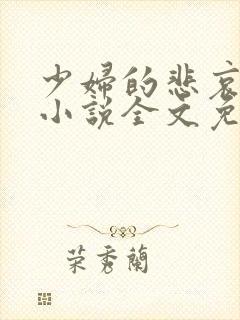 少婦的悲哀
小說全文免
荣秀蘭